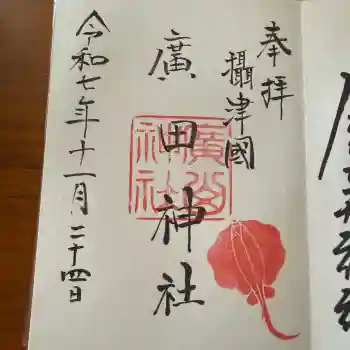 奉拝
攝津國
廣田神社
廣田神社
令和七年十一月二十四日